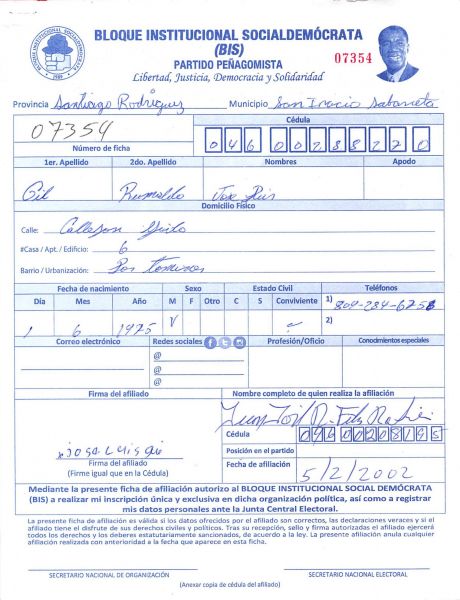 BLOQUE INSTITUCIONAL SOCIALDEMÓCRATA
(BIS)
PARTIDO PEÑAGOMISTA
07354
Libertad, Justicia, Democracia y Solidaridad
Provincia Santiago Rodríguez Municipio San Ignacio Sabaneta
07354
Número de ficha
Cédula
1er. Apellido 2do. Apellido Nombres Apodo
Gil
Domicilio Físico
Calle:
#Casa / Apt. / Edificio: 6
Barrio / Urbanización: Los Tomines
Fecha de nacimiento Sexo Estado Civil Teléfonos
Día Mes Año M F Otro C S Conviviente 1)
1 6 1975 2)
Correo electrónico Redes sociales Profesión/Oficio Conocimientos especiales
@
@
@
Firma del afiliado Nombre completo de quien realiza la afiliación
Cédula
Jose Luis Gil
Posición en el partido
Firma del afiliado
(Firme igual que en la Cédula)
Fecha de afiliación 5/2/2002
Mediante la presente ficha de afiliación autorizo al BLOQUE INSTITUCIONAL SOCIAL DEMÓCRATA
(BIS) a realizar mi inscripción única y exclusiva en dicha organización política, así como a registrar
mis datos personales ante la Junta Central Electoral.
La presente ficha de afiliación es válida si los datos ofrecidos por el afiliado son correctos, las declaraciones veraces y si el
afiliado tiene el disfrute de sus derechos civiles y políticos. Tras su recepción, sello y firma autorizada el afiliado ejercerá
todos los derechos y los deberes estatutariamente sancionados, de acuerdo a la ley. La presente afiliación anula cualquier
afiliación realizada con anterioridad a la fecha que aparece en esta ficha.
SECRETARIO NACIONAL DE ORGANIZACIÓN SECRETARIO NACIONAL ELECTORAL
(Anexar copia de cédula del afiliado)